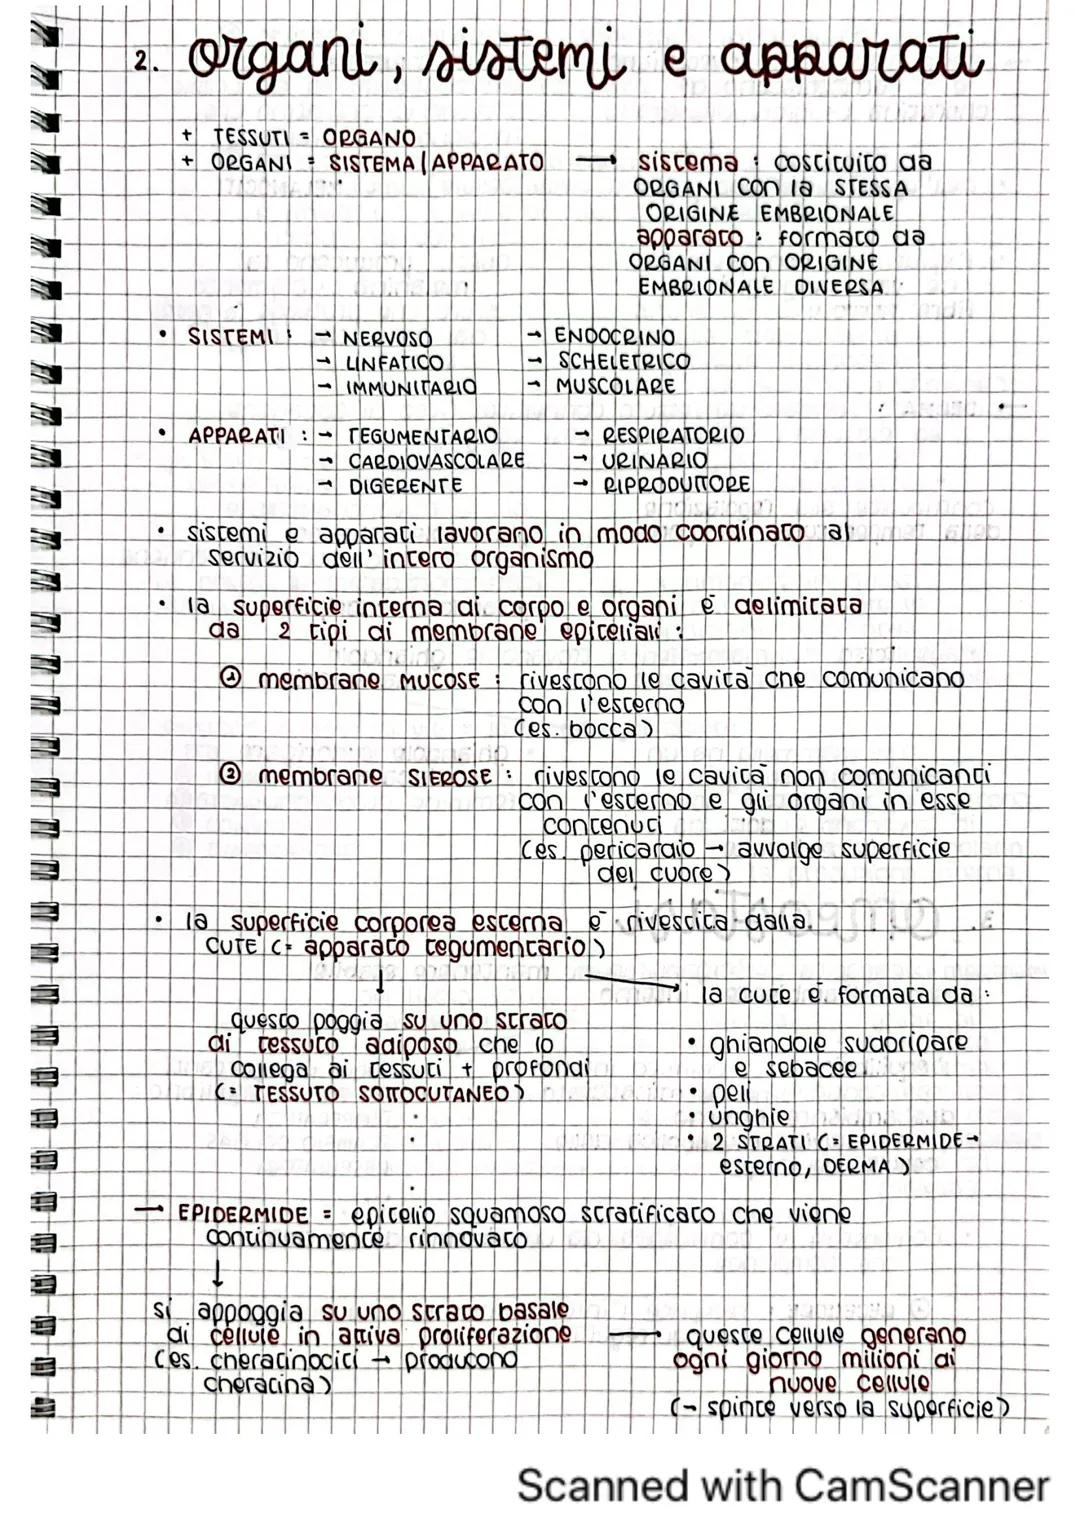 2. organi, sistemi e apparati
+ TESSUTI = ORGANO
+ ORGANI = SISTEMA | APPARATO → sistema : costituito da
ORGANI con la STESSA
ORIGINE EMBRIONALE
apparato : formato da
ORGANI con ORIGINE
EMBRIONALE DIVERSA
• SISTEMI : → NERVOSO → ENDOCRINO
→ LINFATICO → SCHELETRICO
→ IMMUNITARIO → MUSCOLARE
• APPARATI : → TEGUMENTARIO → RESPIRATORIO
→ CARDIOVASCOLARE → URINARIO
→ DIGERENTE → RIPRODUTTORE
• sistemi e apparati lavorano in modo coordinato al
servizio dell' intero organismo
• la superficie interna di corpo e organi è delimitata
da 2 tipi di membrane epiteliali :
① membrane MUCOSE : rivestono le cavità che comunicano
con l'esterno
(es. bocca)
② membrane SIEROSE : rivestono le cavità non comunicanti
con l'esterno e gli organi in esse
contenuti
(es. pericardio → avvolge superficie
del cuore)
• la superficie corporea esterna è rivestita dalla
CUTE (= apparato tegumentario)
↓
→ la cute è formata da :
questo poggia su uno strato
di tessuto adiposo che lo
collega ai tessuti + profondi
(= TESSUTO SOTTOCUTANEO)
• ghiandole sudoripare
e sebacee
• peli
• unghie
• 2 STRATI (= EPIDERMIDE →
esterno, DERMA)
→ EPIDERMIDE = epitelio squamoso stratificato che viene
continuamente rinnovato
↓
si appoggia su uno strato basale
di cellule in attiva proliferazione
(es. cheratinociti → producono
cheratina)
→ queste cellule generano
ogni giorno milioni di
nuove cellule
(→ spinte verso la superficie)
Scanned with CamScanner